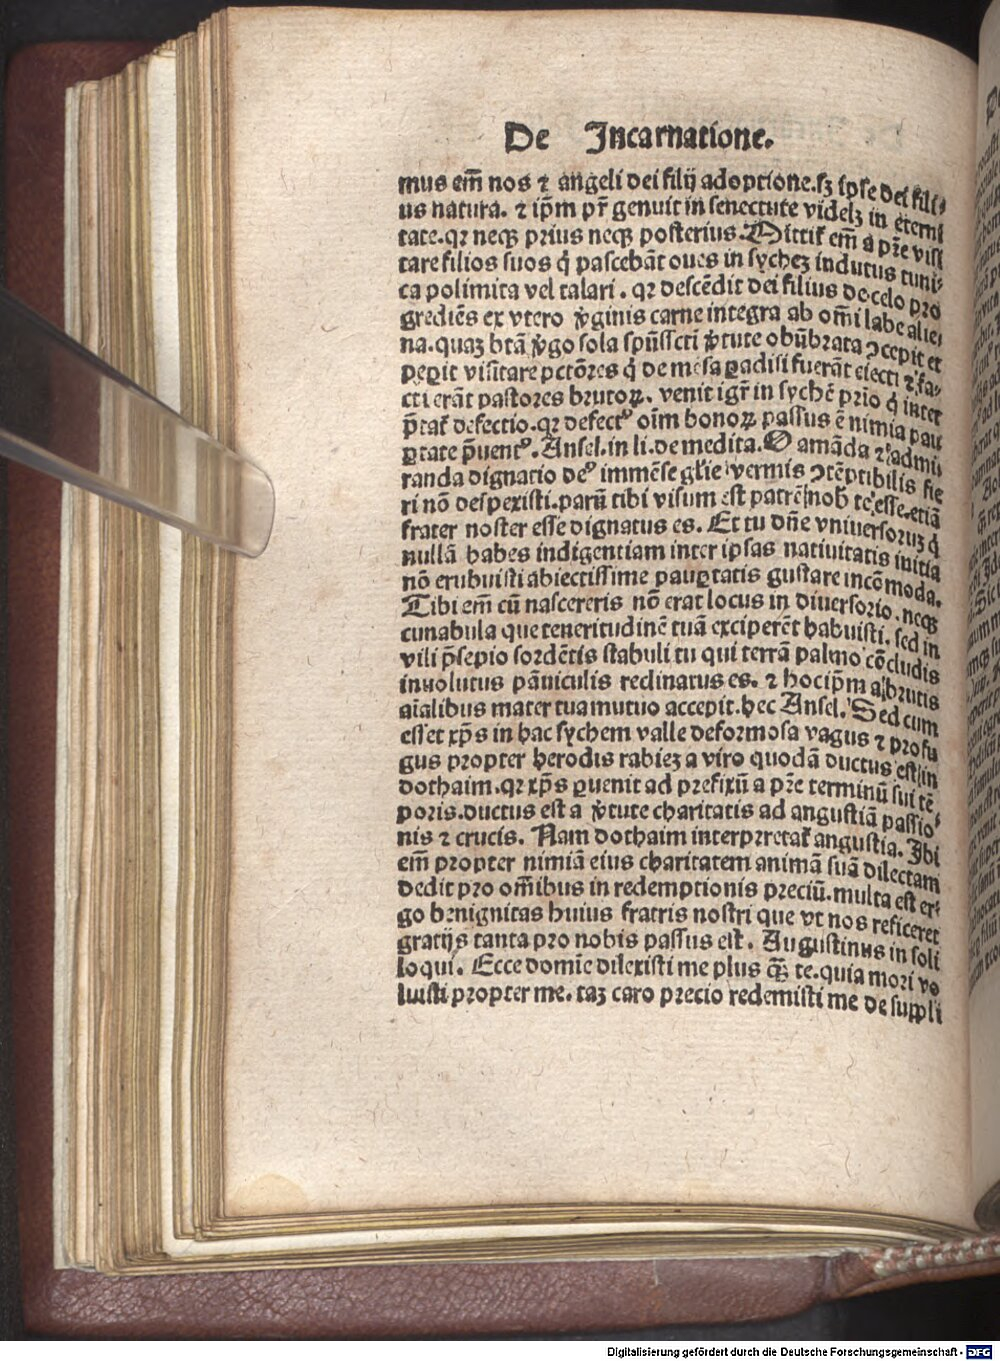 De Incarnatione.
mus em̄ nos ⁊ angeli dei filij adoptione.sꝫ ipse dei fili⸗
us natura. ⁊ ip̄m pr̄ genuit in senectute videlꝫ in eterni
tate.qꝛ neqꝫ prius neqꝫ posterius. Dittit̄ em̄ a p̄re visi
tare filios suos q̇ pascebāt oues in sycheꝫ indutus tuni⸗
ca polimita vel talari. qꝛ descēdit dei filius de celo pro
grediēs ex vtero v̇ginis carne integra ab om̄i labe alie⸗
na.quaꝫ btā v̇go sola spūsscti v̇tute obūbrata ↄcepit et
peꝑit visitare pctōres q̇ de mēsa ꝑadisi fuerāt eiecti ⁊ fa⸗
cti erāt pastores brutoꝝ. venit igr̄ in sychē prio q̇ inter
p̄tat̄ defectio.qꝛ defectꝰ oīm bonoꝝ passus ē nimia pau
ꝑtate p̄uentꝰ. Ansel.in li.de medita. O amāda ⁊ admi
randa dignatio deꝰ immēse gl̄ie vermis ↄtēptibilis fie
ri nō despexisti.parū tibi visum est patrē nob̄ te esse.etiā
frater noster esse dignatus es. Et tu dn̄e vniuersoruꝫ q̇
nullā habes indigentiam inter ipsas natiuitatis initia
nō erubuisti abiectissime pauꝑtatis gustare incōmoda.
Tibi em̄ cū nascereris nō erat locus in diuersorio. neqꝫ
cunabula que teneritudinē tuā exciperēt habuisti. sed in
vili p̄sepio sordētis stabuli tu qui terrā palmo cōcludis
inuolutus pāniculis reclinatus es. ⁊ hoc ip̄m a brutis
aīalibus mater tua mutuo accepit.hec Ansel. Sed cum
esset xp̄s in hac sychem valle deformosa vagus ⁊ profu
gus propter herodis rabieꝫ a viro quodā ductus est in
dothaim.qꝛ xp̄s ꝑuenit ad prefixū a p̄re terminū sui tē
poris.ductus est a v̇tute charitatis ad angustiā passio⸗
nis ⁊ crucis. Nam dothaim interprretat̄ angustia. Ibi
em̄ propter nimiā eius charitatem animā suā dilectam
dedit pro om̄ibus in redemptionis preciū.multa est er⸗
go benignitas huius fratris nostri que vt nos reficeret
gratijs tanta pro nobis passus est. Augustinus in soli
loqui. Ecce domīe dilexisti me plus qꝫ̄ te.quia mori vo
luisti propter me. taꝫ caro precio redemisti me de suppli
Digitalisierung gefördert durch die Deutsche Forschungsgemeinschaft - DFG